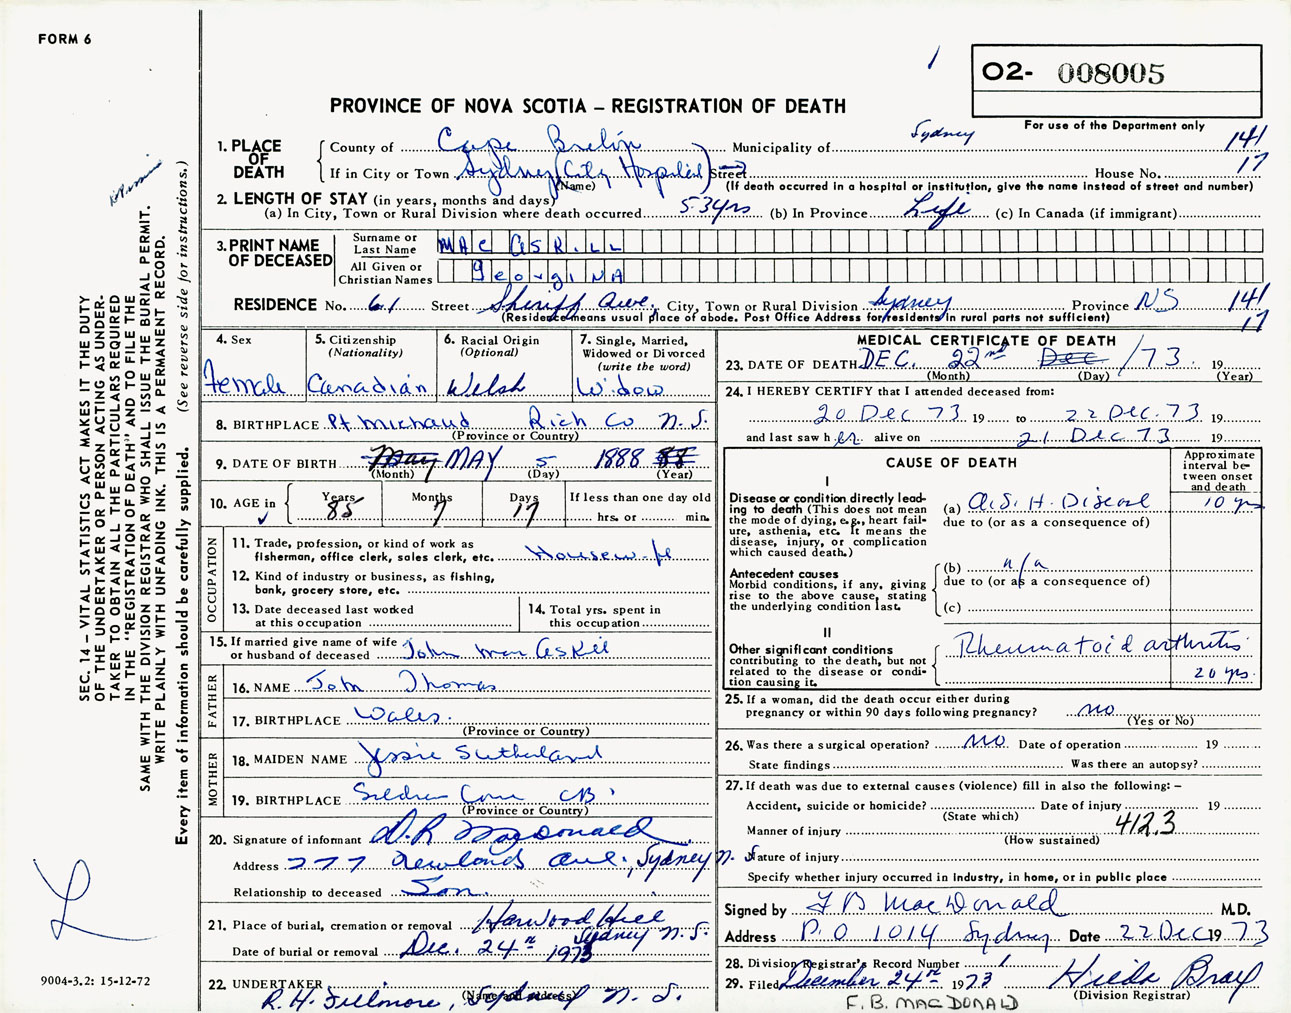 FORM 6
O2- 008005
For use of the Department only
PROVINCE OF NOVA SCOTIA – REGISTRATION OF DEATH
1. PLACE OF DEATH
County of Cape Breton Municipality of Sydney 141
If in City or Town Sydney (City Hospital) Street House No. 17
(Name) (If death occurred in a hospital or institution, give the name instead of street and number)
2. LENGTH OF STAY (in years, months and days)
(a) In City, Town or Rural Division where death occurred 53 yrs (b) In Province Life (c) In Canada (if immigrant)
3. PRINT NAME OF DECEASED
Surname or Last Name MAC ASKILL
All Given or Christian Names GeorgiNA
RESIDENCE No. 61 Street Sheriff Ave, City, Town or Rural Division Sydney Province NS 141
(Residence means usual place of abode. Post Office Address for residents in rural parts not sufficient) 17
4. Sex
Female
5. Citizenship (Nationality)
Canadian
6. Racial Origin (Optional)
Welsh
7. Single, Married, Widowed or Divorced (write the word)
Widow
8. BIRTHPLACE Pt Michaud Rich Co N.S.
(Province or Country)
9. DATE OF BIRTH May MAY 5 1888 88
(Month) (Day) (Year)
10. AGE in
Years 85 Months 7 Days 17
If less than one day old
hrs. or min.
OCCUPATION
11. Trade, profession, or kind of work as
fisherman, office clerk, sales clerk, etc. Housewife
12. Kind of industry or business, as fishing,
bank, grocery store, etc.
13. Date deceased last worked
at this occupation
14. Total yrs. spent in
this occupation
15. If married give name of wife
or husband of deceased John MacAskill
FATHER
16. NAME John Thomas
17. BIRTHPLACE Wales.
(Province or Country)
MOTHER
18. MAIDEN NAME Jessie Sutherland
19. BIRTHPLACE CB
(Province or Country)
20. Signature of informant D.R. MacDonald
Address 777 Newlands Ave., Sydney N.S
Relationship to deceased Son.
21. Place of burial, cremation or removal Harwood Hill
Sydney N.S.
Date of burial or removal Dec. 24th 1973
22. UNDERTAKER
(Name and address)
R.H. Fillmore, Sydney N.S.
MEDICAL CERTIFICATE OF DEATH
23. DATE OF DEATH DEC. 22nd Dec /73 19
(Month) (Day) (Year)
24. I HEREBY CERTIFY that I attended deceased from:
20 Dec 73 19 to 22 Dec. 73 19
and last saw her alive on 21 Dec 73 19
CAUSE OF DEATH
Approximate interval between onset and death
I
Disease or condition directly leading to death (This does not mean the mode of dying, e.g., heart failure, asthenia, etc. It means the disease, injury, or complication which caused death.)
(a) A.S.H. Disease 10 yrs
due to (or as a consequence of)
Antecedent causes
Morbid conditions, if any, giving rise to the above cause, stating the underlying condition last.
(b) n/a
due to (or as a consequence of)
(c)
II
Other significant conditions
contributing to the death, but not related to the disease or condition causing it.
Rheumatoid arthritis
20 yrs.
25. If a woman, did the death occur either during
pregnancy or within 90 days following pregnancy? no
(Yes or No)
26. Was there a surgical operation? NO Date of operation 19
State findings Was there an autopsy?
27. If death was due to external causes (violence) fill in also the following: –
Accident, suicide or homicide? Date of injury 19
(State which) 412.3
Manner of injury
(How sustained)
Nature of injury
Specify whether injury occurred in industry, in home, or in public place
Signed by F B MacDonald M.D.
Address P.O 1014 Sydney Date 22 Dec 1973
28. Division Registrar's Record Number 1
29. Filed December 24th 1973 Hilda Bray
(Division Registrar)
F.B. MACDONALD
SEC. 14 – VITAL STATISTICS ACT MAKES IT THE DUTY
OF THE UNDERTAKER OR PERSON ACTING AS UNDER-
TAKER TO OBTAIN ALL THE PARTICULARS REQUIRED
IN THE "REGISTRATION OF DEATH" AND TO FILE THE
SAME WITH THE DIVISION REGISTRAR WHO SHALL ISSUE THE BURIAL PERMIT.
WRITE PLAINLY WITH UNFADING INK. THIS IS A PERMANENT RECORD.
Every item of information should be carefully supplied. (See reverse side for instructions.)
9004-3.2: 15-12-72